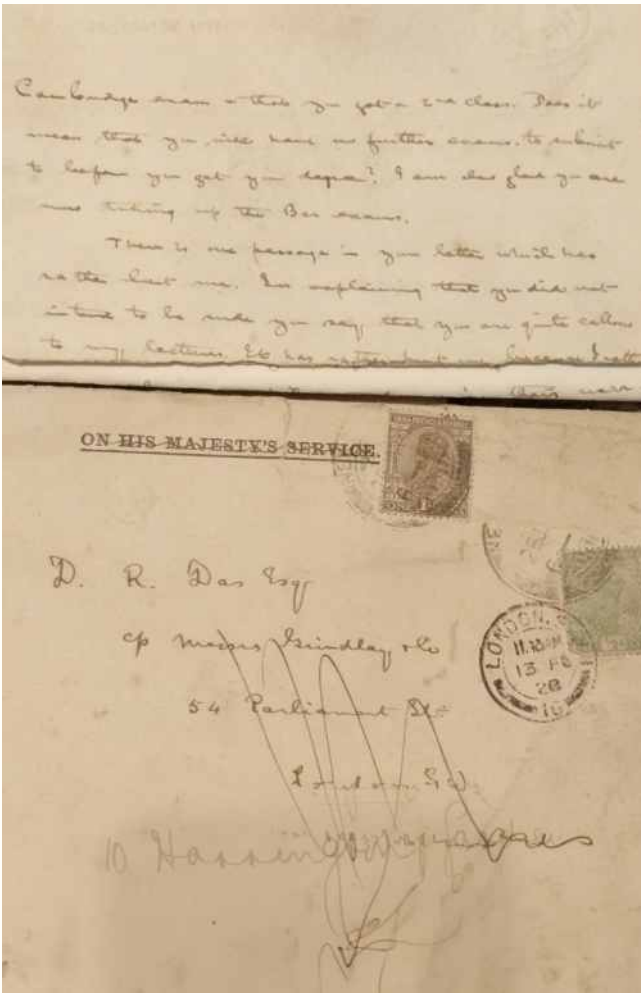 Cambridge exam & that you got a 2nd class. Does it
mean that you will have no further exams. to submit
to before you get your degree? I am also glad you are
now taking up the Bar exams.
There is one passage in your letter which has
rather hurt me. In explaining that you did not
intend to be rude you say that you are quite callous
to my lectures. It has rather hurt me because I
ON HIS MAJESTY'S SERVICE.
D. R. Das Esqr
c/o Messrs Grindlay & Co
54 Parliament St
London S.W.
10 Harrington
LONDON. S.
11.15AM
13 FE
28